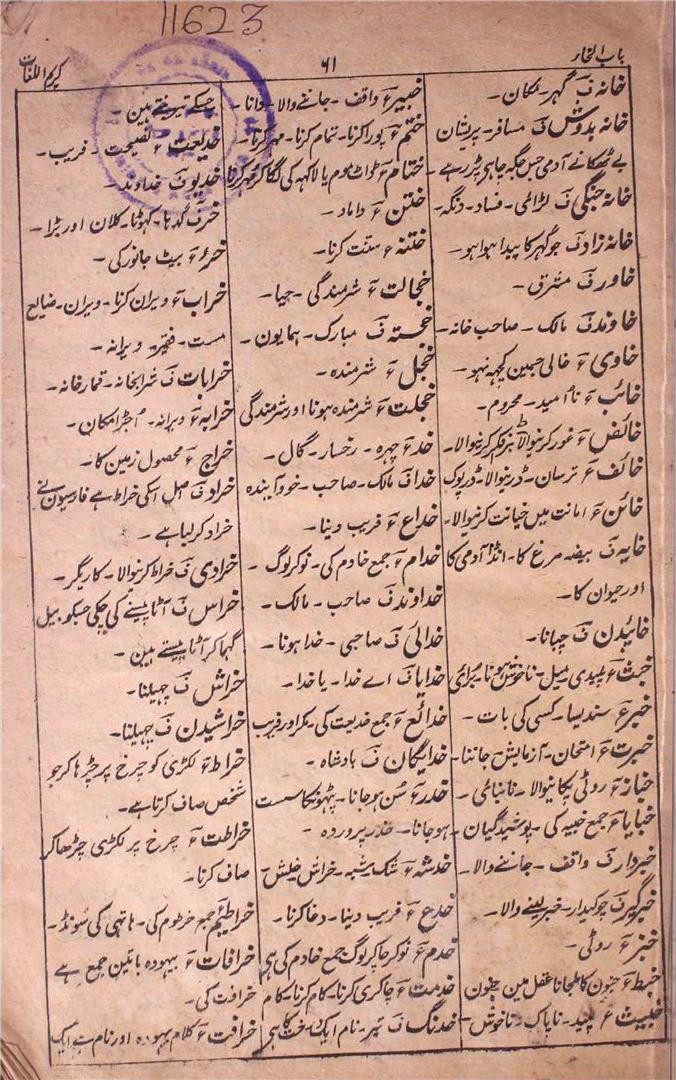 11623
باب الخاء
۶۱
کریم اللغات
خانہ ف گہر۔ مکان۔
خانہ بدوش ف مسافر۔ پریشان
بے ٹھکانے آدمی جس جگہ چاہی پڑ رہے۔
خانہ جنگی ف لڑائی۔ فساد۔ دنگہ۔
خانہ زاد ف جو گہر کا پیدا ہوا ہو۔
خاور ف مشرق۔
خاوند ف مالک۔ صاحب خانہ۔
خاوی ۶ خالی جسمین کچہہ نہو۔
خائب ۶ نا امید۔ محروم۔
خائض ۶ غور کرنیوالا۔ فکر کرنیوالا۔
خائف ۶ ترسان۔ ڈرنیوالا۔ ڈرپوک
خائن ۶ امانت میں خیانت کرنیوالا۔
خایہ ف بیضہ مرغ کا۔ انڈا آدمی کا
اور حیوان کا۔
خاییدن ف چبانا۔
خبث ۶ پلیدی۔ میل۔ ناخوش ہونا۔ برائی
خبر ۶ سندیسا۔ کسی کی بات۔
خبرت ۶ امتحان۔ آزمایش۔ جاننا۔
خبازہ ۶ روٹی پکانیوالا۔ نانبائی۔
خبایا ۶ جمع خبیہ کی۔ پوشیدگیان۔
خبردار ف واقف۔ جاننے والا۔
خبرگیر ف چوکیدار۔ خبر لینے والا۔
خبز ۶ روٹی۔
خبط ۶ جنون کا ملجانا عقل مین جنون
خبیث ۶ پلید۔ ناپاک۔ ناخوش۔
خبیر ۶ واقف۔ جاننے والا۔ دانا۔
ختم ۶ پورا کرنا۔ تمام کرنا۔ مہر کرنا۔
ختام ۶ موم یا لاکہہ کی لگا کر مہر کرنا
ختن ۶ داماد۔
ختنہ ۶ سنت کرنا۔
خجالت ۶ شرمندگی۔ حیا۔
خجستہ ف مبارک۔ ہمایون۔
خجل ۶ شرمندہ۔
خجلت ۶ شرمندہ ہونا اور شرمندگی
خد ۶ چہرہ۔ رخسار۔ گال۔
خدا ف مالک۔ صاحب۔ خود آیندہ
خداع ۶ فریب دینا۔
خدام ۶ جمع خادم کی۔ نوکر لوگ۔
خداوند ف صاحب۔ مالک۔
خدائی ف صاحبی۔ خدا ہونا۔
خدایا ف اے خدا۔ یا خدا۔
خدائع ۶ جمع خدیعت کی۔ مکر اور فریب
خدایگان ف بادشاہ۔
خدر ۶ سُن ہوجانا۔ پٹہونکا سست
ہوجانا۔ خدر پروردہ۔
خدشہ ۶ شک شبہ۔ خراش خلش۔
خدع ۶ فریب دینا۔ دغا کرنا۔
خدم ۶ نوکر چاکر لوگ جمع خادم کی ہی
خدمت ۶ چاکری کرنا۔ کام کرنا۔ کام
خدنگ ف تیر۔ نام ایک درخت کا ہی
جسکے تیر بنتے ہین۔
خدیعت ۶ فضیحت۔ فریب۔
خدیو ف خداوند۔
خر ف گدہا۔ کہوٹا۔ کلان اور بڑا۔
خرء ۶ بیٹ جانور کی۔
خراب ۶ ویران کرنا۔ ویران۔ ضایع
مست۔ فقیر۔ ویرانہ۔
خرابات ف شرابخانہ۔ قمارخانہ۔
خرابہ ۶ ویرانہ۔ اُجڑا مکان۔
خراج ۶ محصول زمین کا۔
خراد ف اصل اسکی خراط ہے فارسیون نے
خراد کر لیا ہے۔
خرادی ف خراط کرنیوالا۔ کاریگر۔
خراس ف آٹا پیسنے کی چکی جسکو بیل
گہما کر آٹا پیستے ہین۔
خراش ف چہیلنا۔
خراشیدن ف چہیلنا۔
خراط ۶ لکڑی کو چرخ پر چڑہا کر جو
شخص صاف کرتا ہے۔
خراطت ۶ چرخ پر لکڑی چڑھا کر
صاف کرنا۔
خراطیم ۶ جمع خرطوم کی۔ ہاتہی کی سونڈ۔
خرافات ۶ بیہودہ باتین جمع ہے
خرافت کی۔
خرافت ۶ کلام بیہودہ اور نام ہے ایک